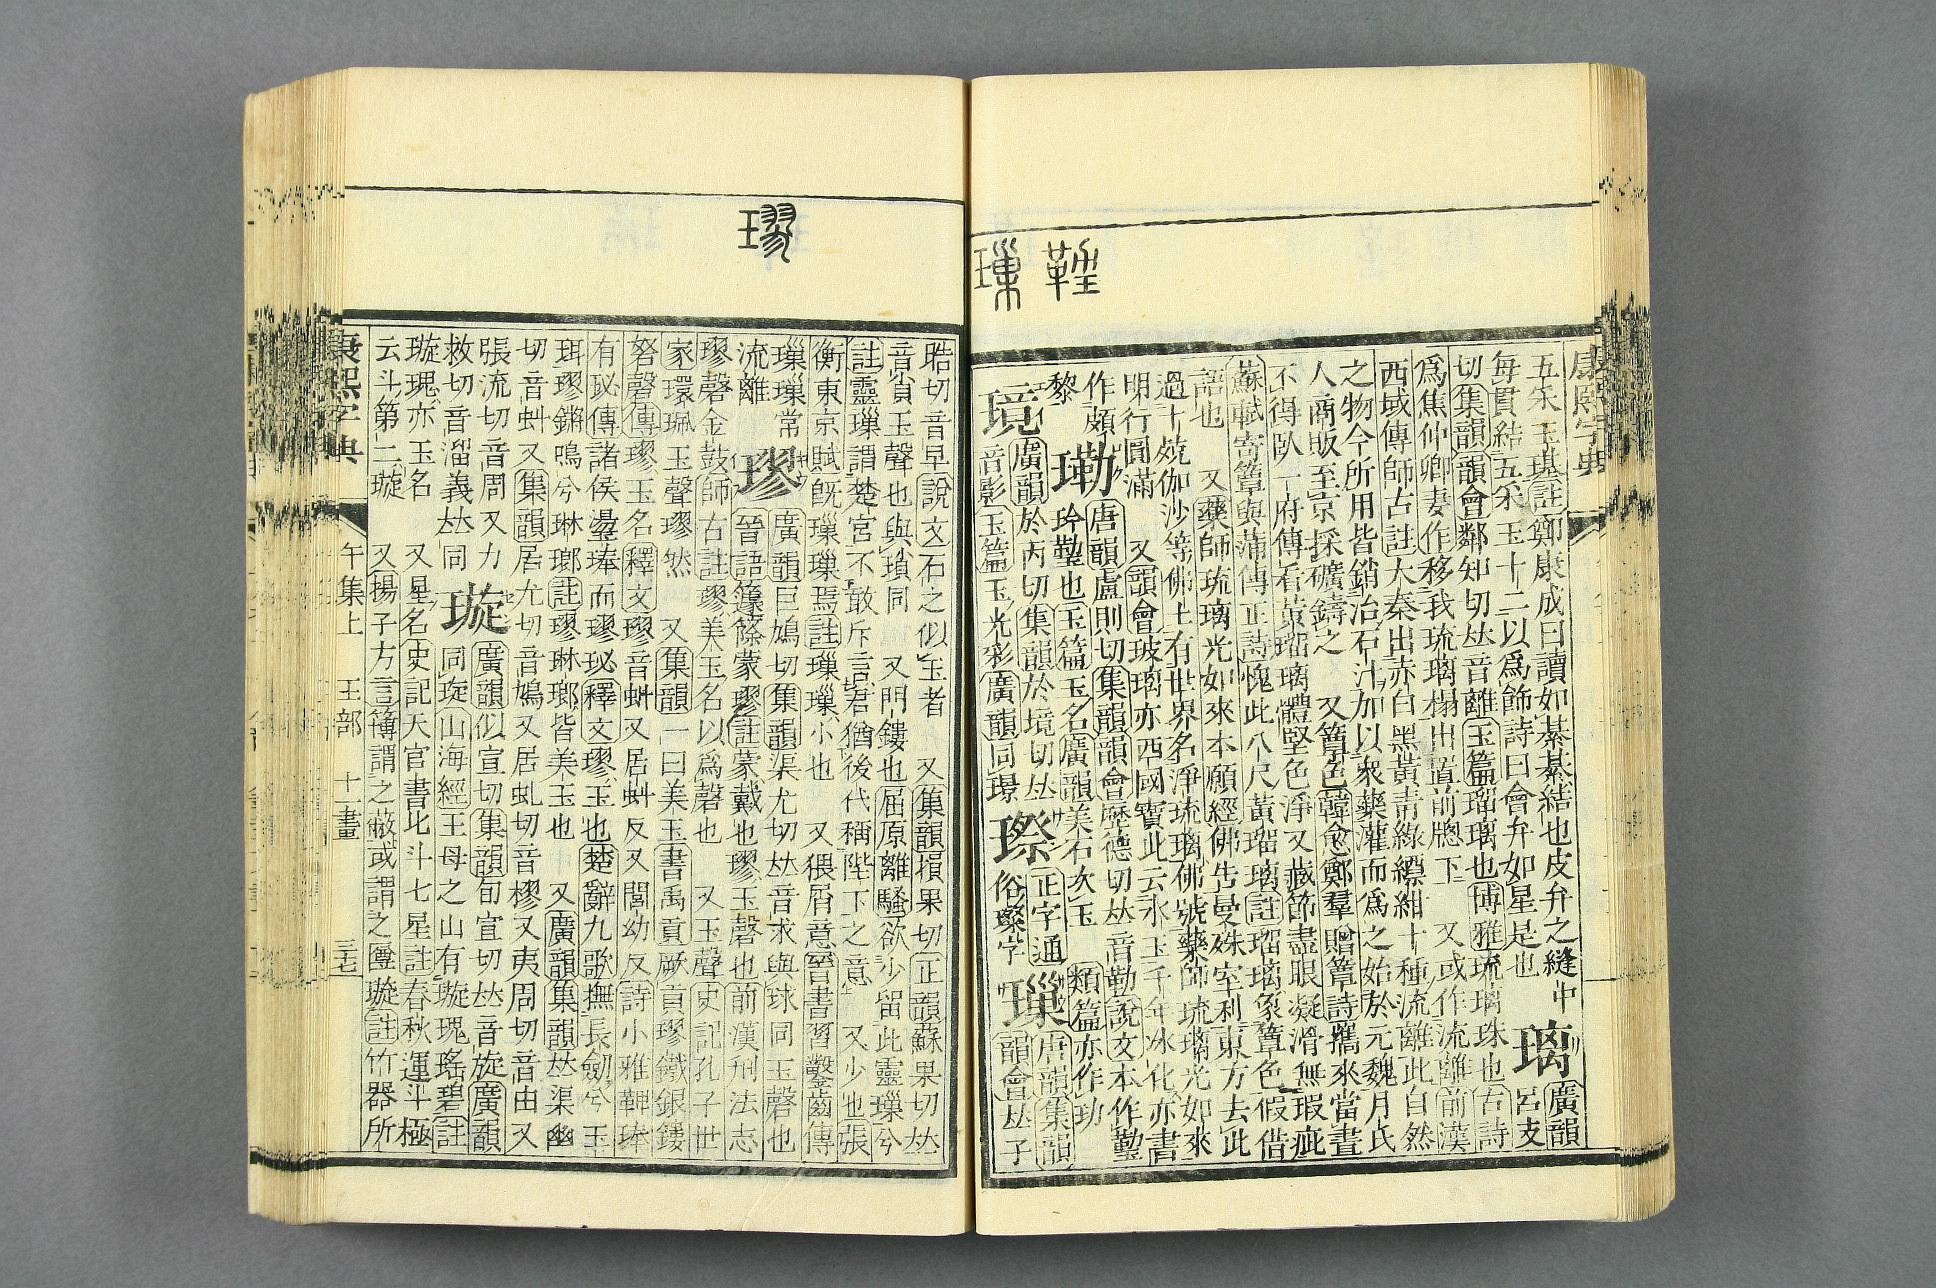 康熙字典
五采玉璂註鄭康成曰讀如綦綦結也皮弁之縫中 璃 廣韻
每貫結五采玉十二以爲飾詩曰會弁如星是也 呂支
切集韻韻會鄰知切𠀤音離玉篇瑠璃也博雅琉璃珠也古詩
爲焦仲卿妻作移我琉璃榻出置前牕下 又或作流離前漢
西域傳師古註大秦出赤白黑黃靑綠縹紺十種流離此自然
之物今所用皆銷冶石汁加以衆藥灌而爲之始於元魏月氏
人商販至京採礦鑄之 又簟色韓愈鄭羣贈簟詩攜來當晝
不得臥一府傳看黃瑠璃體堅色淨又藏節盡眼凝滑無瑕疵
蘇軾寄簟與蒲傳正詩愧此八尺黃瑠璃註瑠璃象簟色假借
語也 又藥師琉璃光如來本願經佛告曼殊室利東方去此
過十殑伽沙等佛土有世界名淨琉璃佛號藥師琉璃光如來
明行圓滿 又韻會玻璃亦西國寶此云水玉千年冰化亦書
作頗 唐韻盧則切集韻韻會歷德切𠀤音勒說文本作
黎 玪也玉篇玉名廣韻美石次玉 類篇亦作玏
璄 廣韻於丙切集韻於境切𠀤 正字通 璅 唐韻集韻
音影玉篇玉光彩廣韻同璟 俗璨字 韻會𠀤子
璅
璆
晧切音早說文石之似玉者 又集韻損果切正韻蘇果切𠀤
音玉聲也與瑣同 又門鏤也屈原離騷欲少留此靈璅兮
註靈璅謂楚宮不敢斥言君猶後代稱陛下之意 又少也張
衡東京賦旣璅璅焉註璅璅小也 又猥屑意晉書習鑿齒傳
璅璅常 璆 廣韻巨鳩切集韻渠尤切𠀤音求與球同玉磬也
流離 晉語籧篨蒙璆註蒙戴也璆玉磬也前漢刑法志
璆磬金鼓師古註璆美玉名以爲磬也 又玉聲史記孔子世
家環珮玉聲璆然 又集韻一曰美玉書禹貢厥貢璆鐵銀鏤
砮磬傳璆玉名釋文璆音蚪又居蚪反又閭幼反詩小雅鞞琫
有珌傳諸侯璗琫而璆珌釋文璆玉也楚辭九歌撫長劒兮玉
珥璆鏘鳴兮琳瑯註璆琳瑯皆美玉也 又廣韻集韻𠀤渠幽
切音蚪又集韻居尤切音鳩又居虬切音樛又夷周切音由又
張流切音周又力 璇 廣韻似宣切集韻旬宣切𠀤音旋廣韻
救切音溜義𠀤同 同琁山海經王母之山有璇瑰瑤碧註
璇瑰亦玉名 又星名史記天官書北斗七星註春秋運斗極
云斗第二璇 又揚子方言簙謂之蔽或謂之璇註竹器所
康熙字典 午集上 玉部 十一畫 三七